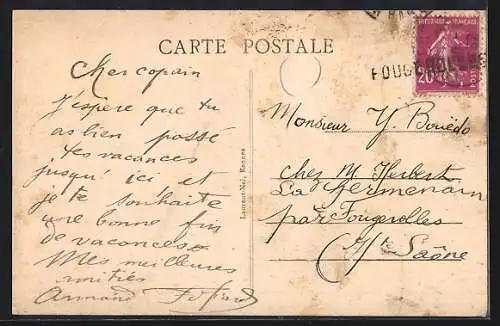 CARTE POSTALE
Cher copain
J'espère que tu
as bien passé
tes vacances
jusqu'ici et
je te souhaite
une bonne fin
de vacances
Mes meilleures
amitiés
Armand
Laurent-Nel, Rennes
FOUGEROLLES
20
POSTES
Monsieur Y. Bouëdo
chez M. Herbert
La
par Fougerolles
Hte Saône